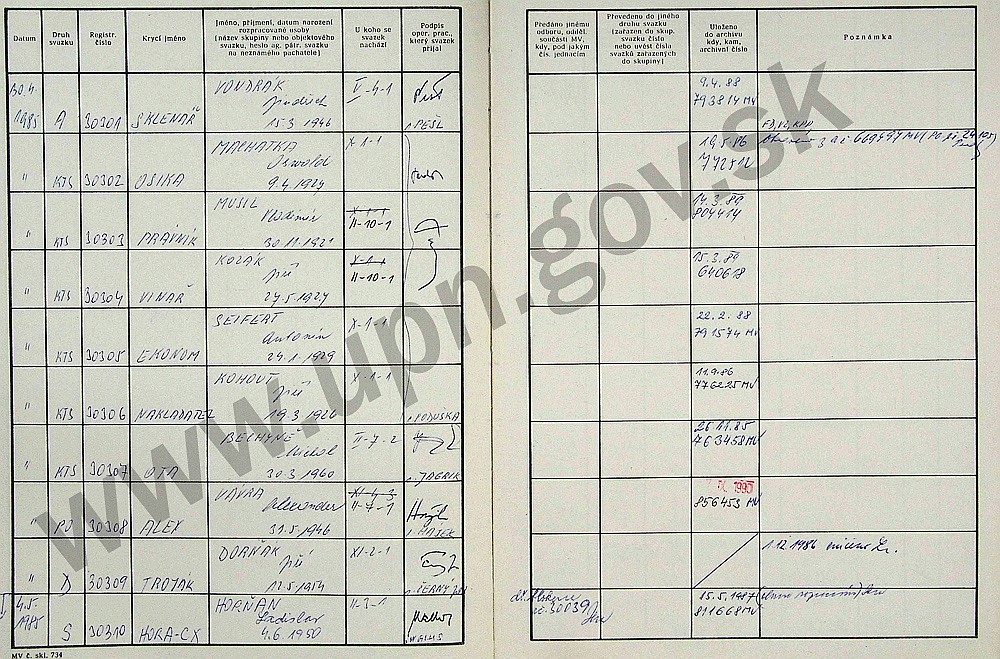 Datum
Druh svazku
Registr. číslo
Krycí jméno
Jméno, příjmení, datum narození
rozpracované osoby
(název skupiny nebo objektového
svazku, heslo ag. pátr. svazku
na neznámého pachatele)
U koho se
svazek
nachází
Podpis
oper. prac.,
který svazek
přijal
Předáno jinému
odboru, odděl.
součásti MV,
kdy, pod jakým
čís. jednacím
Převedeno do jiného
druhu svazku
(zařazen do skup.
svazku číslo
nebo uvést číslo
svazků zařazených
do skupiny)
Uloženo
do archivu
kdy, kam,
archivní číslo
Poznámka
30.4. VONDRÁK V-4-1 9.4.88
Jindřich 793814 MV
1985 A 30301 SKLENÁŘ 15.3.1946 PEŠL
MACHATKA X-1-1 19.5.86
Oswald 772512
" KTS 30302 OSIKA 9.4.1929
MUSIL X-1-1 14.3.89
Vladimír II-10-1 804414
" KTS 30303 PRÁVNÍK 30.11.1921
KOZÁK X-1-1 15.3.89
Jiří II-10-1 640618
" KTS 30304 VINAŘ 27.5.1927
SEIFERT X-1-1 22.2.88
Antonín 791574 MV
" KTS 30305 EKONOM 29.1.1929
KOHOUT X-1-1 11.9.86
Jiří 776225 MV
" KTS 30306 NAKLADATEL 19.3.1926 PODUSKA
BECHYNĚ II-7-2 26.11.85
Michal 763458 MV
" KTS 30307 OTA 30.3.1960
VÁVRA XI-4-3 1990
Alexander II-7-1 856453 MV
" PO 30308 ALEX 31.5.1946 HÁJEK
DORŇÁK XI-2-1 1.12.1986 zničeno
Jiří
" D 30309 TROJÁK 12.5.1954 ČERNÝ
4.5. HORŇAN II-3-1 15.5.1987
1985 Ladislav 30039 811668 MV
S 30310 HORA-CX 4.6.1950
MV č. skl. 734
www.upn.gov.sk